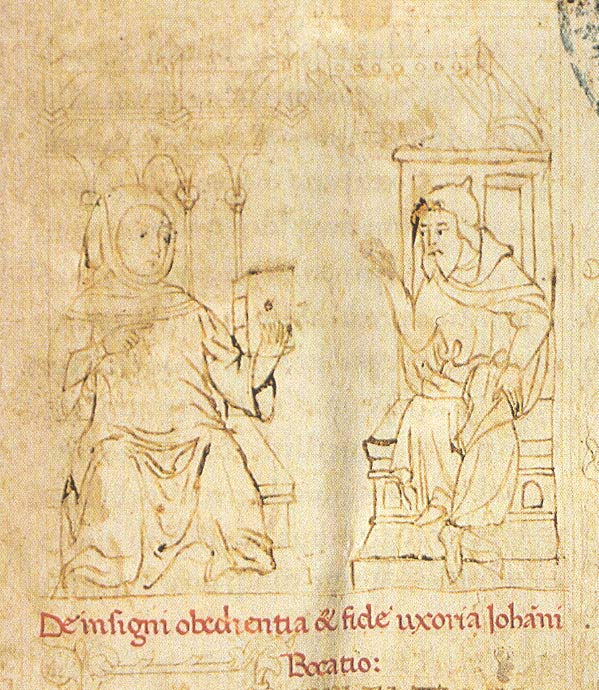 De insigni obedientia & fide uxoria Johãni
Bocatio: